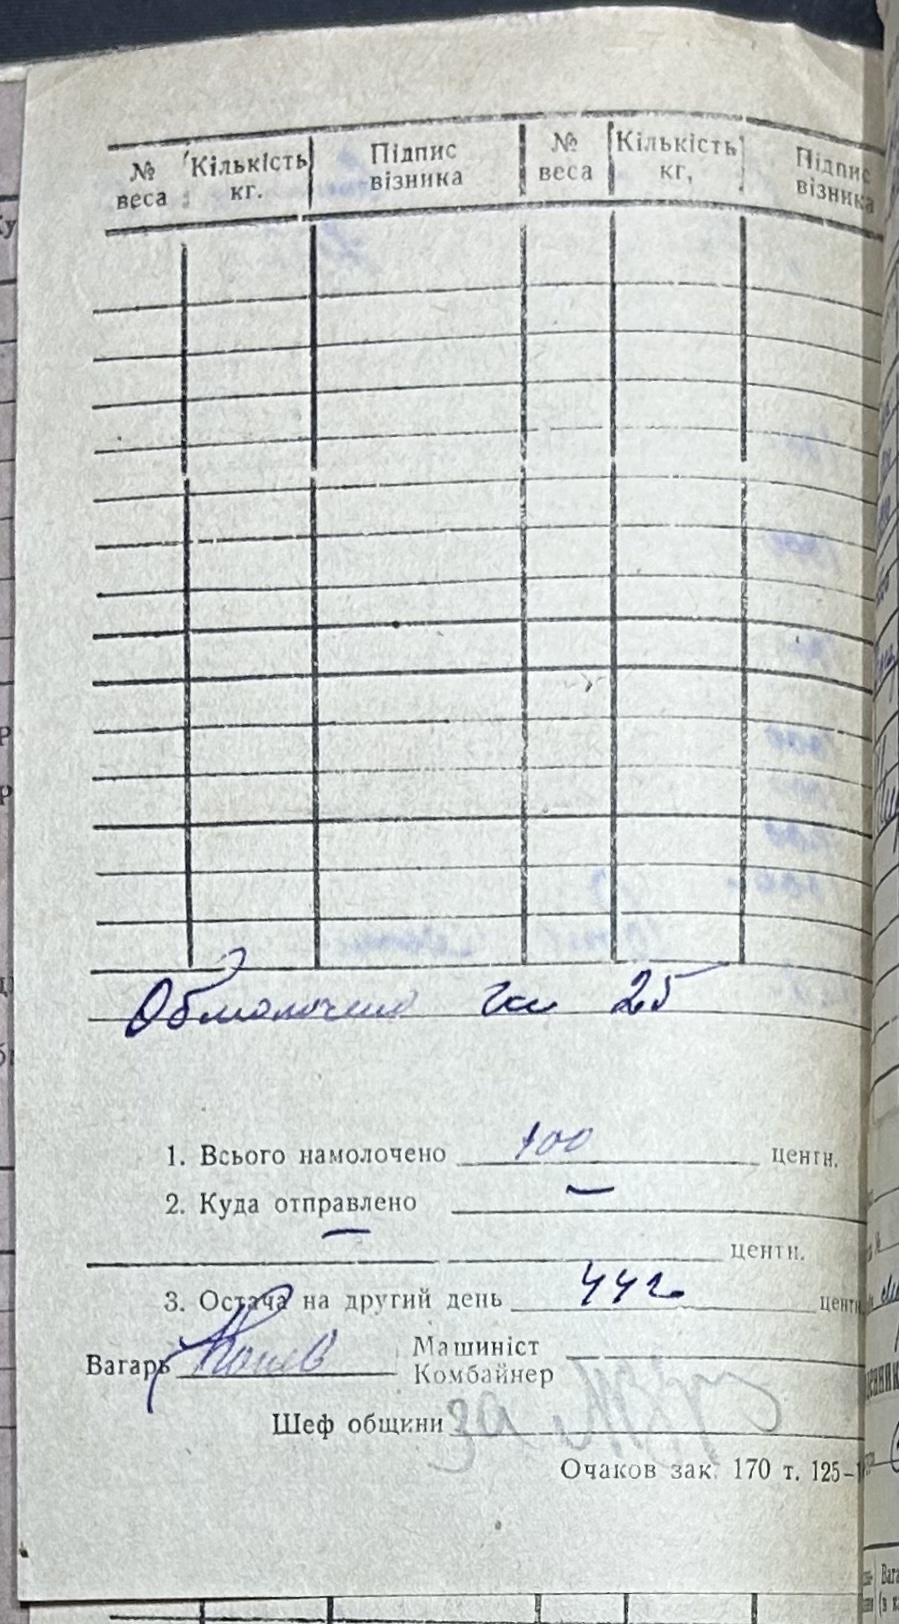 № веса Кількість кг. Підпис візника № веса Кількість кг, Підпис візника
Обмолочено га 25
1. Всього намолочено 100 центн.
2. Куда отправлено —
— центн.
3. Остача на другий день центн
Вагарь Машиніст
Комбайнер
Шеф общини
Очаков зак. 170 т. 125-